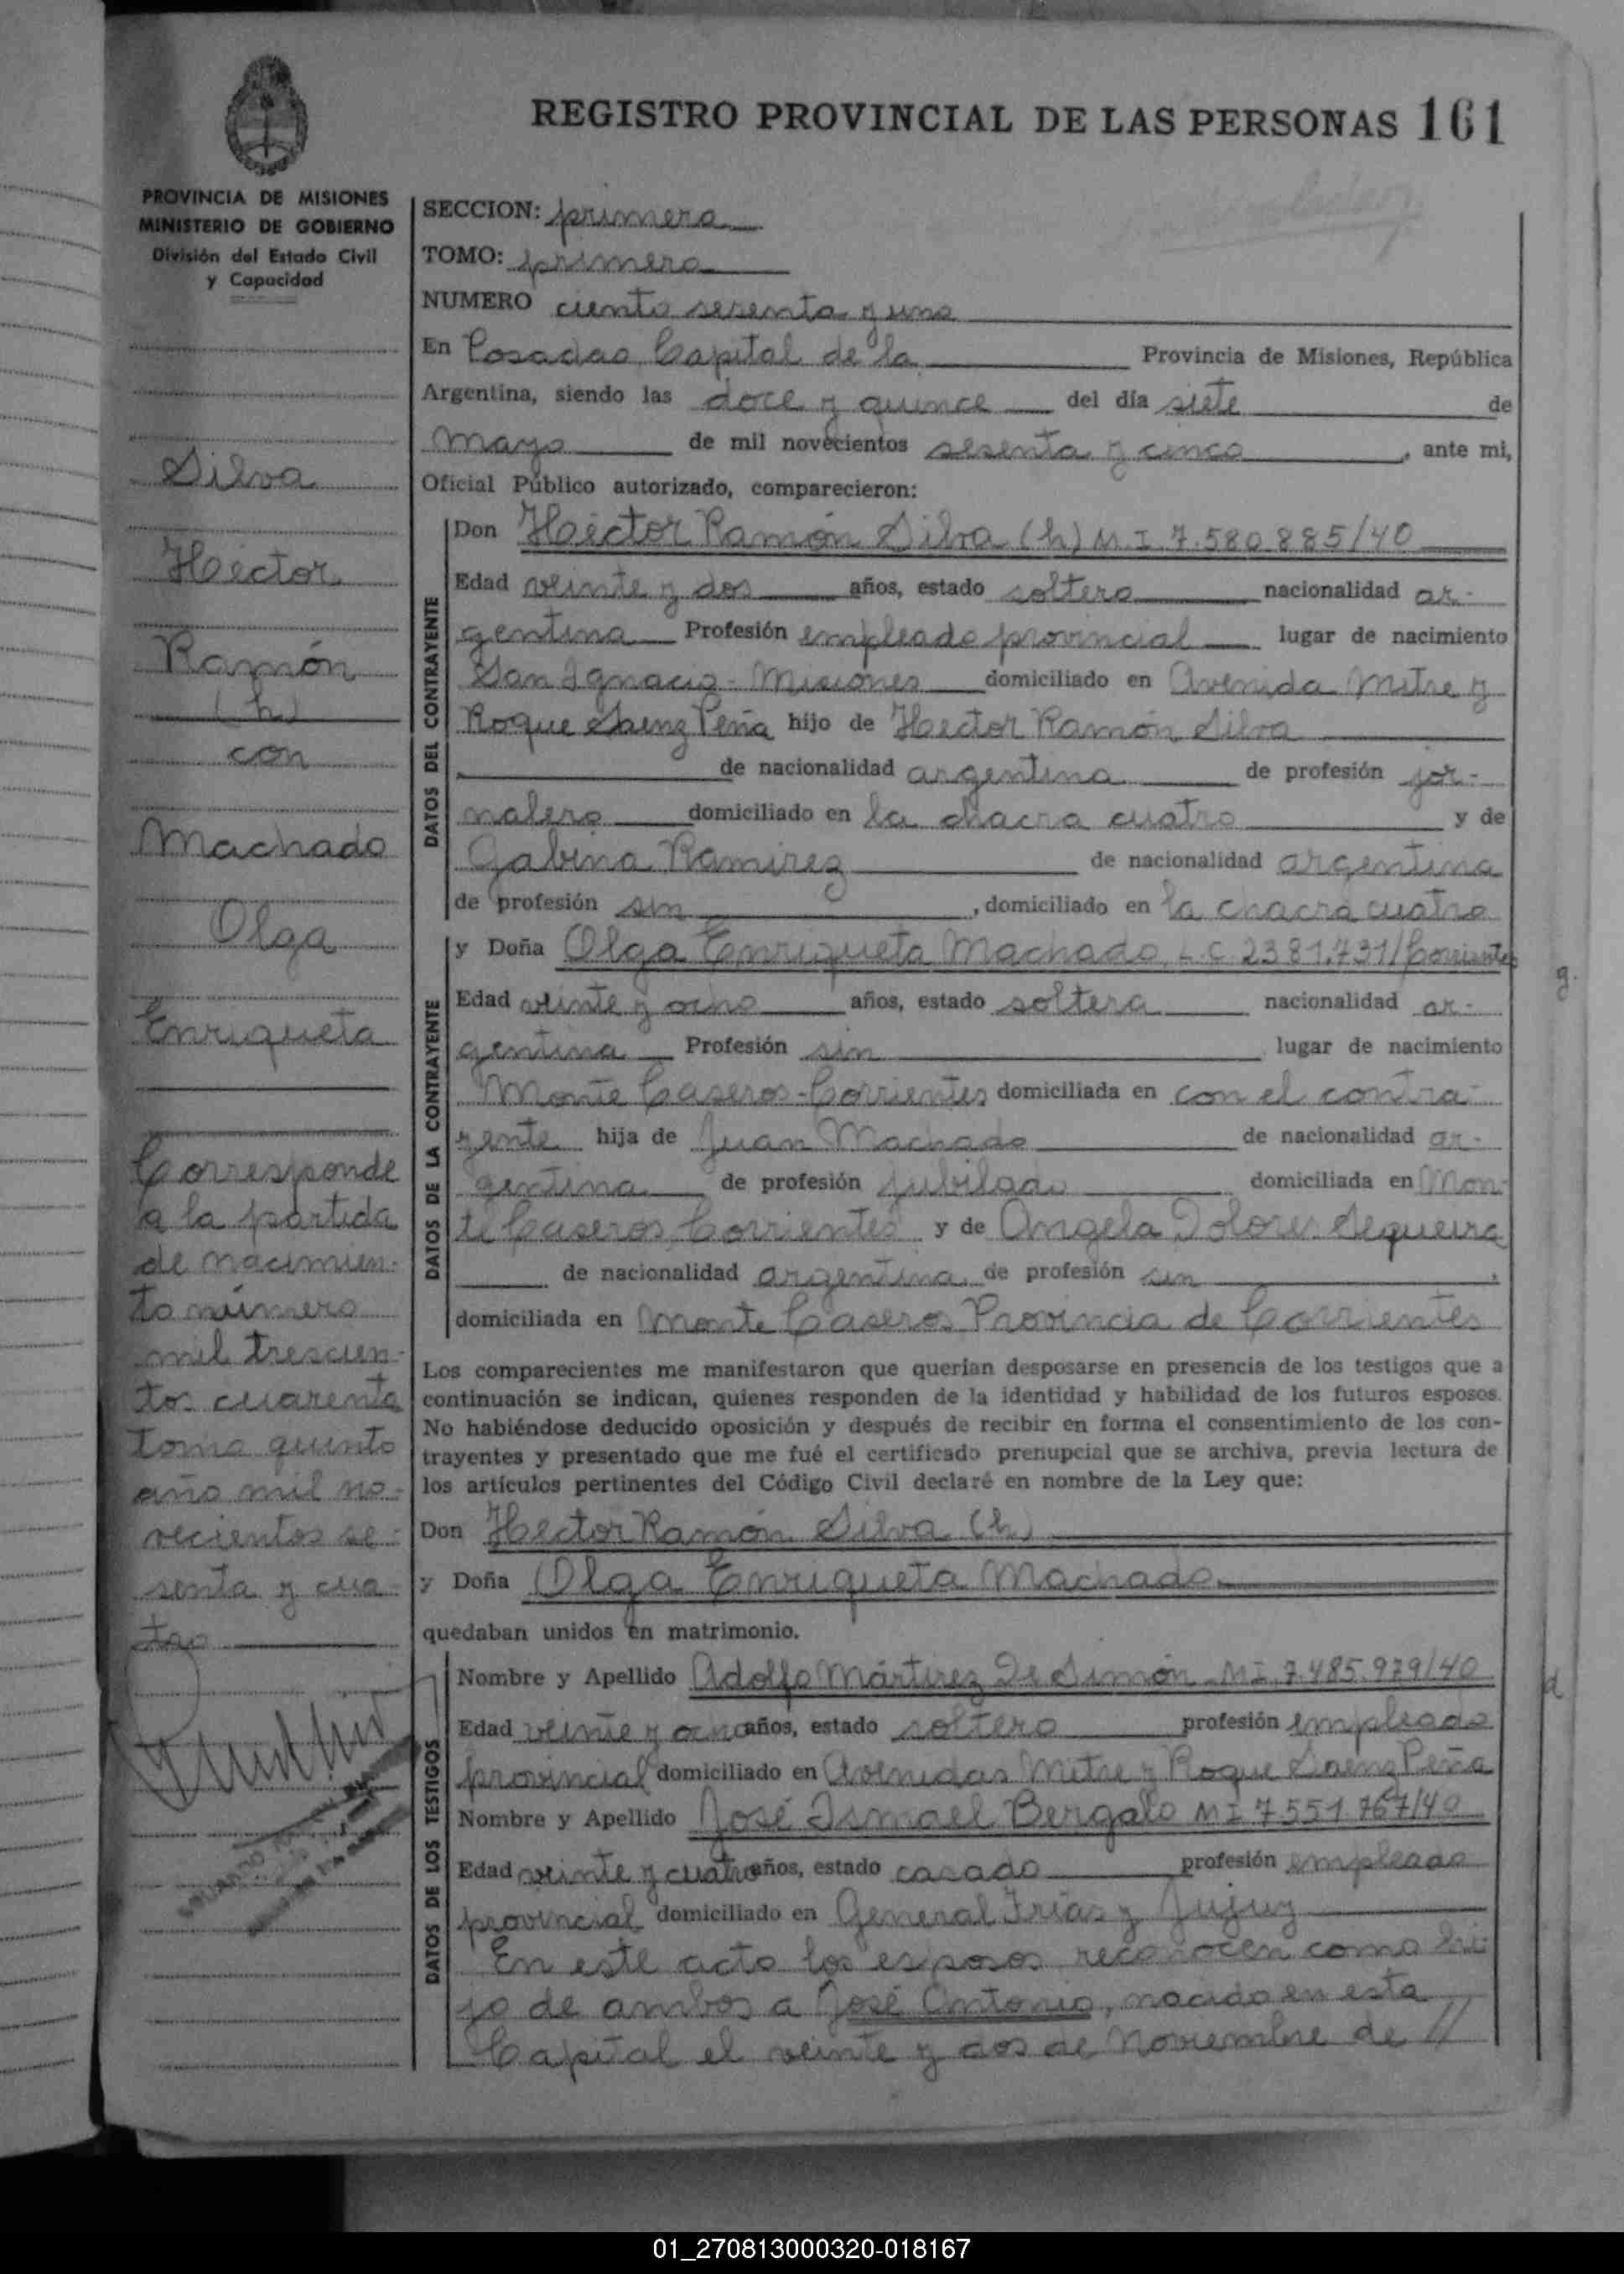 REGISTRO PROVINCIAL DE LAS PERSONAS 161
PROVINCIA DE MISIONES
MINISTERIO DE GOBIERNO
División del Estado Civil
y Capacidad
Silva
Héctor
Ramón
(h)
con
Machado
Olga
Enriqueta
Corresponde
a la partida
de nacimien-
to número
mil trescien-
tos cuarenta
tomo quinto
año mil no-
vecientos se-
senta y cua-
tro
SECCION: primera
TOMO: primero
NUMERO ciento sesenta y uno
En Posadas Capital de la Provincia de Misiones, República
Argentina, siendo las doce y quince del día siete de
mayo de mil novecientos sesenta y cinco, ante mi,
Oficial Público autorizado, comparecieron:
DATOS DEL CONTRAYENTE
Don Héctor Ramón Silva (h) M.I. 7.580.885/40
Edad veinte y dos años, estado soltero nacionalidad ar-
gentina Profesión empleado provincial lugar de nacimiento
San Ignacio - Misiones domiciliado en Avenida Mitre y
Roque Saenz Peña hijo de Héctor Ramón Silva
de nacionalidad argentina de profesión jor-
nalero domiciliado en la chacra cuatro y de
Gabina Ramirez de nacionalidad argentina
de profesión sin, domiciliado en la chacra cuatro
DATOS DE LA CONTRAYENTE
y Doña Olga Enriqueta Machado, L.C. 2381.731/Corrientes
Edad veinte y ocho años, estado soltera nacionalidad ar-
gentina Profesión sin lugar de nacimiento
Monte Caseros - Corrientes domiciliada en con el contra-
yente hija de Juan Machado de nacionalidad ar-
gentina de profesión jubilado domiciliada en Mon-
te Caseros Corrientes y de Angela Dolores Sequeira
de nacionalidad argentina de profesión sin,
domiciliada en Monte Caseros Provincia de Corrientes
Los comparecientes me manifestaron que querían desposarse en presencia de los testigos que a
continuación se indican, quienes responden de la identidad y habilidad de los futuros esposos.
No habiéndose deducido oposición y después de recibir en forma el consentimiento de los con-
trayentes y presentado que me fué el certificado prenupcial que se archiva, previa lectura de
los artículos pertinentes del Código Civil declaré en nombre de la Ley que:
Don Héctor Ramón Silva (h)
y Doña Olga Enriqueta Machado
quedaban unidos en matrimonio.
DATOS DE LOS TESTIGOS
Nombre y Apellido Adolfo Mártirez De Simón - MI. 7.485.979/40
Edad veinte y ocho años, estado soltero profesión empleado
provincial domiciliado en Avenidas Mitre y Roque Saenz Peña
Nombre y Apellido José Ismael Bergalo MI 7551.767/40
Edad veinte y cuatro años, estado casado profesión empleado
provincial domiciliado en General Frías y Jujuy
En este acto los esposos reconocen como hi-
jo de ambos a José Antonio, nacido en esta
Capital el veinte y dos de noviembre de //
01_270813000320-018167